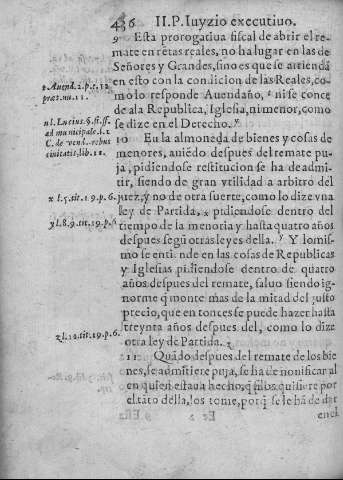 436 II.P. Iuyzio executiuo.
9 Esta prorogatiua fiscal de abrir el re-
mate en rētas reales, no ha lugar en las de
Señores y Grandes, sino es que se arriendā
en esto con la condicion de las Reales, co-
mo lo responde Auendaño, ni se conce
de a la Republica, Iglesia, ni menor, como
se dize en el Derecho.
10 En la almoneda de bienes y cosas de
menores, auiēdo despues del remate pu-
ja, pidiendose restitucion se ha de admi-
tir, siendo de gran vtilidad a arbitro del
juez, y no de otra suerte, como lo dize vna
ley de Partida, x pidiendose dentro del
tiempo de la menoria y hasta quatro años
despues segū otras leyes della. y Y lo mis-
mo se entiende en las cosas de Republicas
y Iglesias pidiendose dentro de quatro
años despues del remate, saluo siendo ig-
norme q̄ monte mas de la mitad del justo
precio, que entonces se puede hazer hasta
treynta años despues del, como lo dize
otra ley de Partida. z
11 Quādo despues del remate de los bie
nes, se admitiere puja, se ha de notificar al
en quien estaua hecho, q̄ si los quisiere por
el tāto della, los tome, porq̄ se le hā de dar
en el
Auend. 2. p. c. 12
præt. nu. 11.
u l. Lucius. §. si. ff.
ad municipale. l. 2
C. de vend. rebus
ciuitatis. lib. 11.
x l. 5. tit. 19. p. 6.
y l. 8. 9. tit. 19. p. 6
z l. 10. tit. 19. p. 6.